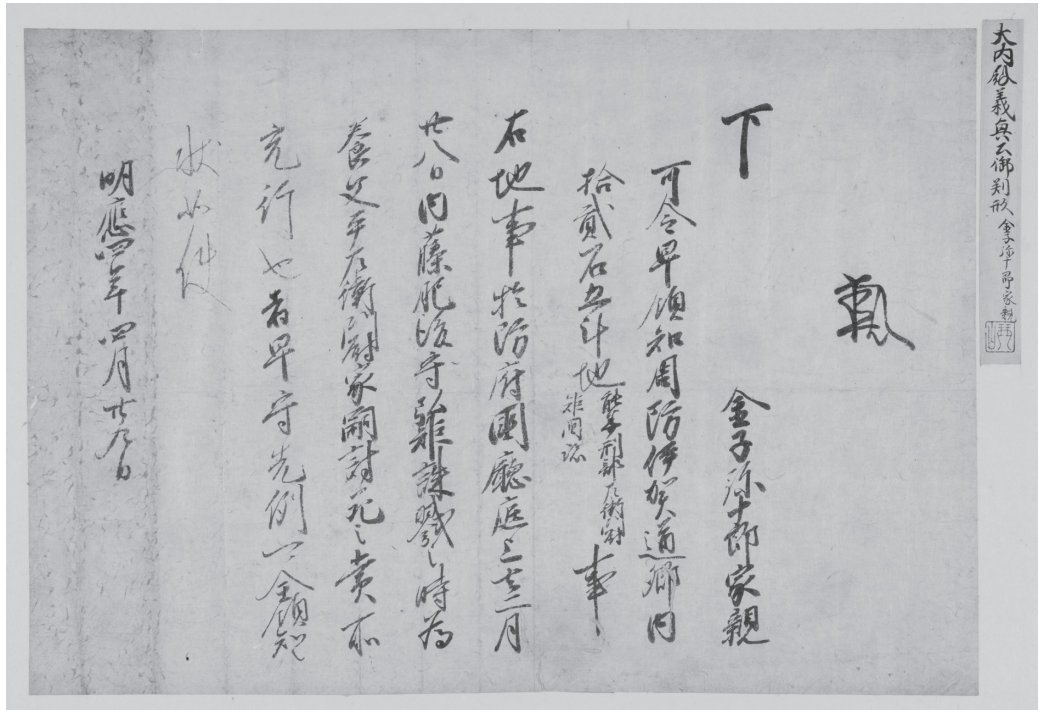 大内殿義興公御判形 金子弥十郎家親
下 金子弥十郎家親
可令早領知周防伊賀道郷内
拾貳石五斗地 事
右地事於防府國廳庭上去二月
廿八日内藤肥後守弘矩誅戮之時為
養父平左衛門尉家嗣討死之賞所
充行也者早守先例可全領知
状如件
明應四年四月廿九日